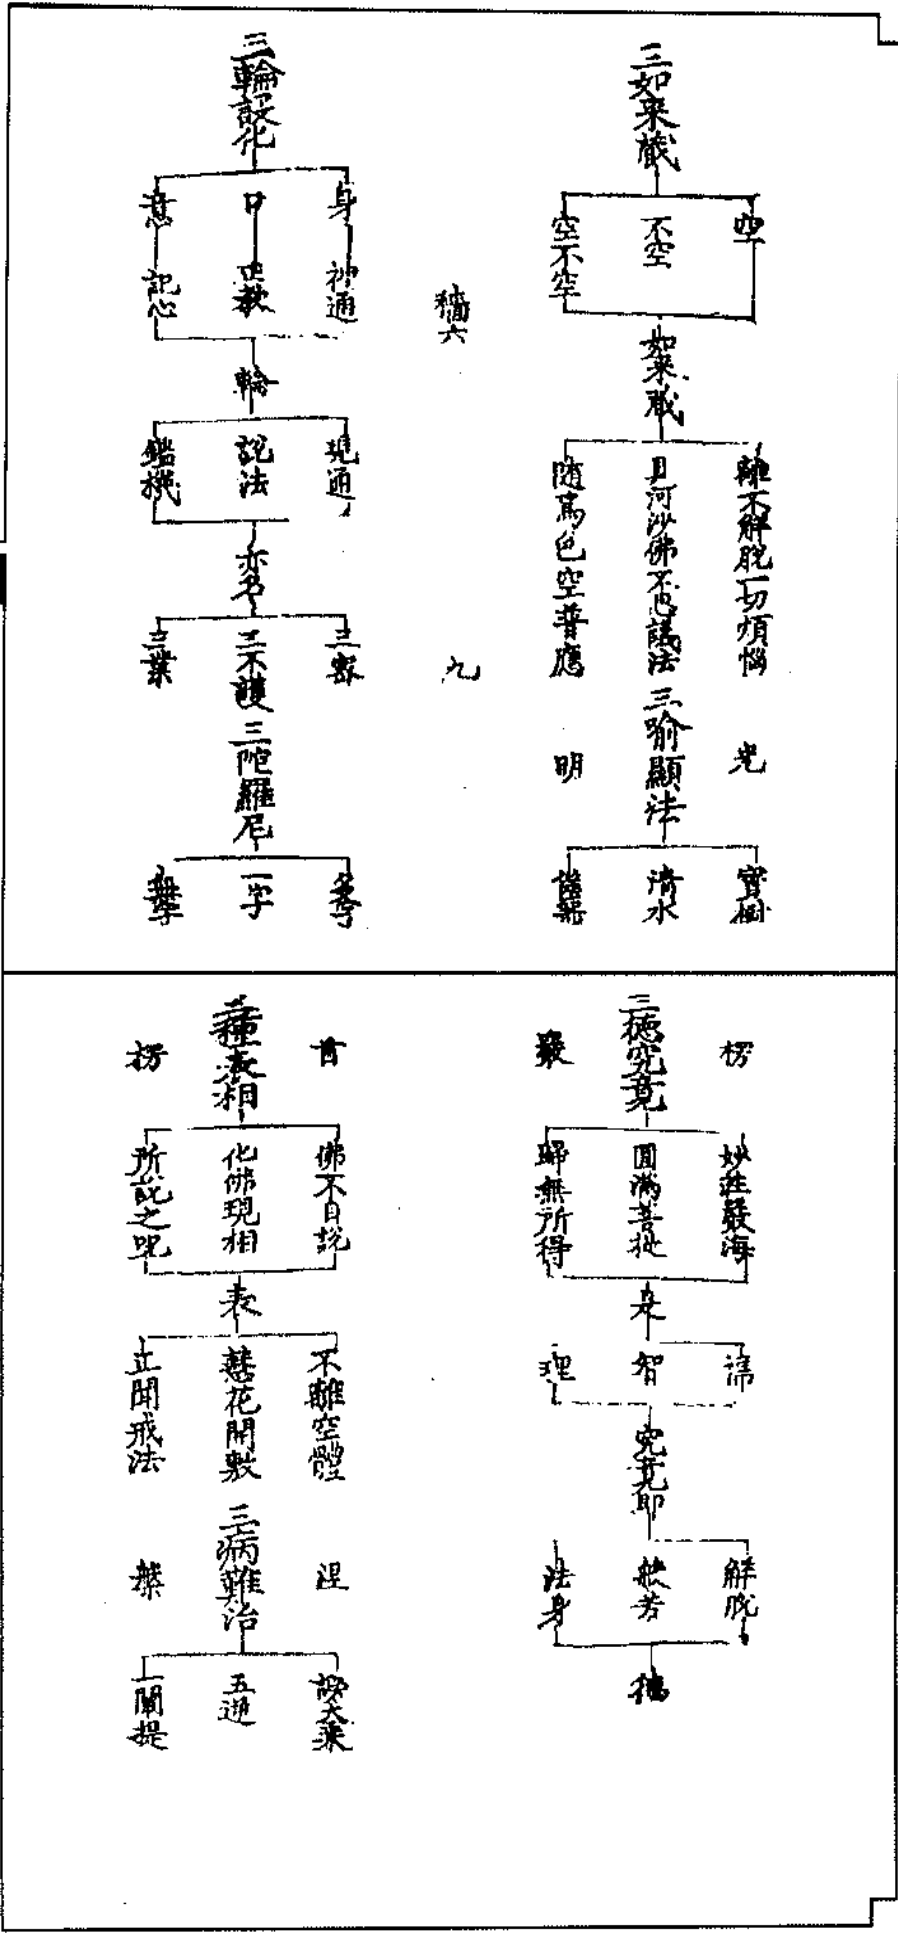 三如来藏
空
不空
空不空
如来藏
離不解脫一切煩惱
具河沙佛不思議法
随爲色空普應
三喻顯法
光
明
寶樹
清水
九
三輪設化
身
口
意
神通
正教
記心
輪
現通
說法
鑑機
亦名
三密
三不護
三業
三陀羅尼
多字
一字
無字
三德究竟
楞
嚴
妙莊嚴海
圓滿菩提
歸無所得
是
諦
智
理
究竟即
解脫
般若
法身
德
三種表相
首
楞
佛不自說
化佛現相
所說之呪
表
不離空體
慧花開敷
立開戒法
三病難治
涅
槃
謗大乘
五逆
一闡提